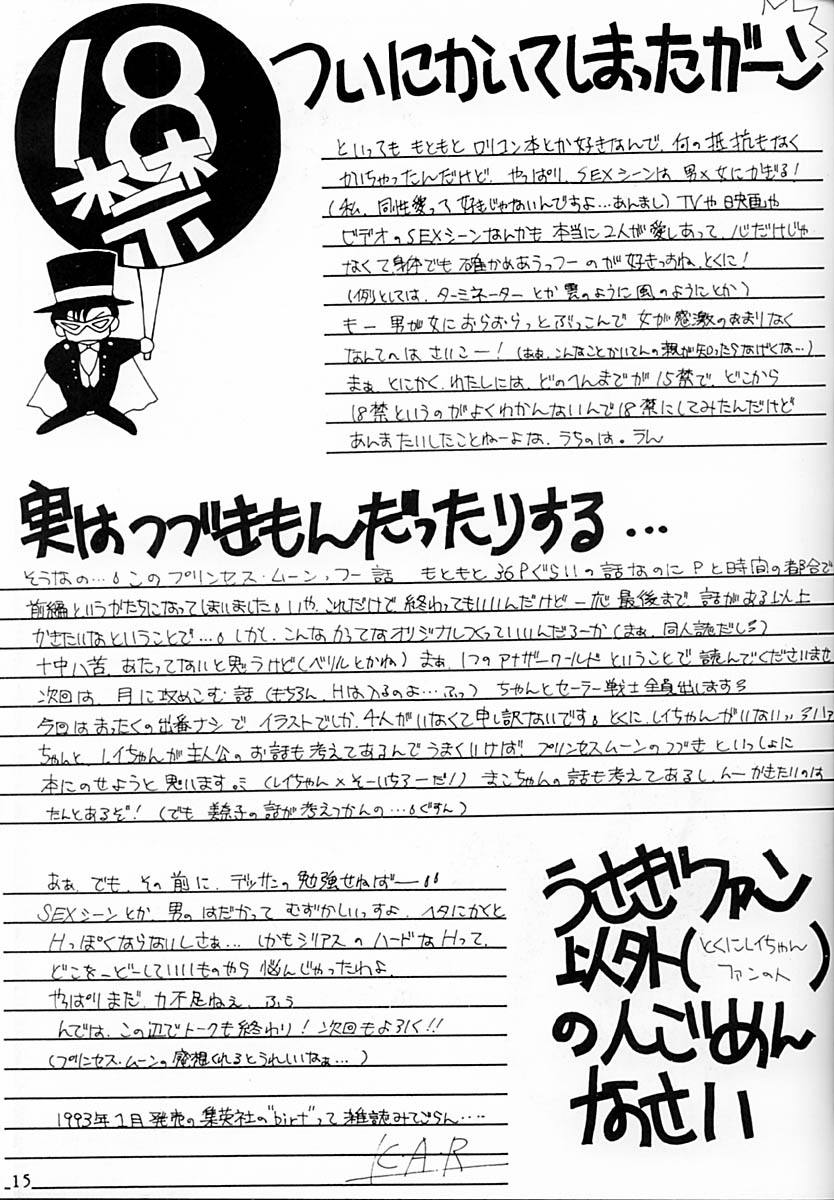 18禁
ついにかいてしまったガーン
といっても もともと ロリコン本とか好きなんで、何の抵抗もなく
かいちゃったんだけど、やっぱり、SEXシーンは 男×女にかぎる!
(私、同性愛って 好きじゃないんですよ…あんまし) TVや映画や
ビデオのSEXシーンなんかも 本当に2人が愛しあって、心だけじゃ
なくて身体でも 確かめあうっつーのが好きっすね、とくに!
(例としては、ターミネーター とか 雲のように風のようにとか)
もー 男が女におらおらっとぶっこんで 女が感激のあまりなく
なんてへは さいこー! (あぁ、こんなことかいてんの親が知ったらなげくな…)
まぁ、とにかく、わたしには、どのへんまでが 15禁で、どこから
18禁というのがよくわかんないんで18禁にしてみたんだけど
あんまたいしたことねーよな、うちのは。うん
実はつづきもんだったりする…
そうなの…。このプリンセス・ムーンっつー話 もともと36Pぐらいの話なのにPと時間の都合で
前編というかたちになってしまいました。いや、これだけで終わってもいいんだけど一応最後まで話がある以上
かきたいなということで…。しかし、こんなかってなオリジナルつくっていいんだろーか(まぁ、同人誌だしろ)
十中八苦、あたってないと思うけど(ベリルとかね)まぁ、1つのアナザーワールドということで読んでくださいませ
次回は、月に攻めこむ話(もちろん、Hは入るのよ…ふっ) ちゃんとセーラー戦士全員出しますう
今回はまったくの出番ナシで、イラストでしか、4人がいなくて申し訳ないです。とくに、レイちゃんがいない
ちゃんと、レイちゃんが主人公のお話も考えてあるんでうまくいけば、プリンセスムーンのつづきといっしょに
本にのせようと思います。(レイちゃん×そーいちろーだ!) まこちゃんの話も考えてあるし、んーかきたいのは
たんとあるぞ! (でも 美奈子の話が考えつかんの…。ぐすん)
あぁ、でも、その前に、デッサンの勉強せねばー
SEXシーンとか、男のはだかって むずかしいっすよ、ヘタにかくと
Hっぽくならないしさぁ… しかもシリアスのハードなHって、
どこをーどーしていいものやら 悩んじゃったわよ、
やっぱりまだ、力不足ねぇ、ふぅ
んでは、この辺でトークも終わり! 次回もよろしく!!
(プリンセス・ムーンの感想くれるとうれしいなぁ…)
1993年1月発売の集英社の"birt"って雑誌みてごらん…
K・A・R
うさぎファン
以外(とくにレイちゃんファンの人)
の人ごめん
なさい
15